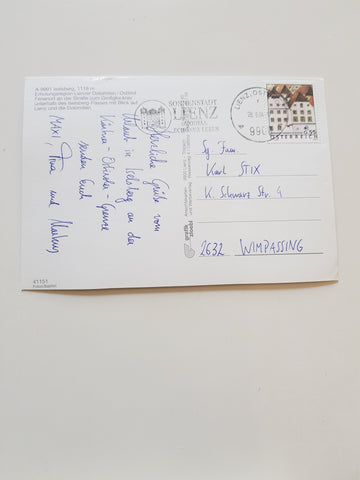 A-9991 Iselsberg, 1118 m
Erholungsregion Lienzer Dolomiten / Osttirol
Ferienort an der Straße zum Großglockner
unterhalb des Iselsberg-Passes mit Blick auf
Lienz und die Dolomiten
Herzliche Grüße vom
Urlaub in Iselsberg an der
Kärtner-Osttiroler-Grenze
senden Euch
MAXI, Tina und Markus
41151
SONNENSTADT
LIENZ
LIENZ, OST
990
ÖSTERREICH
Sg. Fam.
Karl STIX
K. Schwarz Str. 9
2632 WIMPASSING